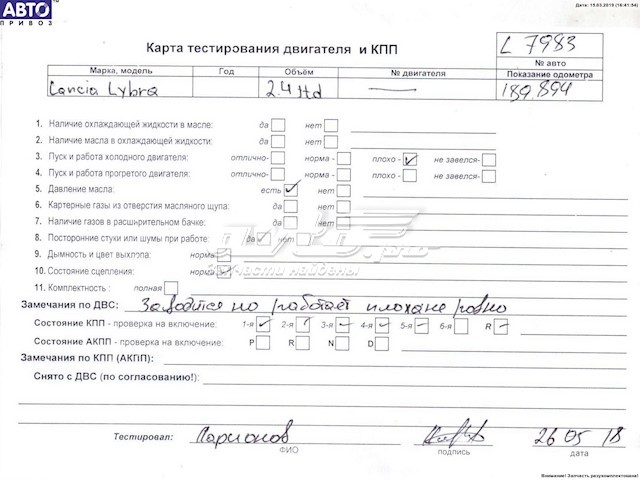 АВТО
ПРИВОЗ
Дата: 15.03.2019 (16:41:54)
Карта тестирования двигателя и КПП
L 7983
№ авто
Марка, модель Год Объём № двигателя Показание одометра
Lancia Lybra 2.4 jtd — 189.894
1. Наличие охлаждающей жидкости в масле: да нет
2. Наличие масла в охлаждающей жидкости: да нет
3. Пуск и работа холодного двигателя: отлично- норма - плохо - не завелся-
4. Пуск и работа прогретого двигателя: отлично- норма - плохо - не завелся-
5. Давление масла: есть нет
6. Картерные газы из отверстия масляного щупа: да нет
7. Наличие газов в расширительном бачке: да нет
8. Посторонние стуки или шумы при работе: да нет
9. Дымность и цвет выхлопа: норма
10. Состояние сцепления: норма
запчасти найдены
11. Комплектность : полная
Замечания по ДВС: Заводится но работает плоха не ровно
Состояние КПП - проверка на включение: 1-я 2-я 3-я 4-я 5-я 6-я R
Состояние АКПП - проверка на включение: P R N D
Замечания по КПП (АКПП):
Снято с ДВС (по согласованию!):
Тестировал: Ларионов 26 05 18
ФИО подпись дата
Внимание! Запчасть разукомплектована!